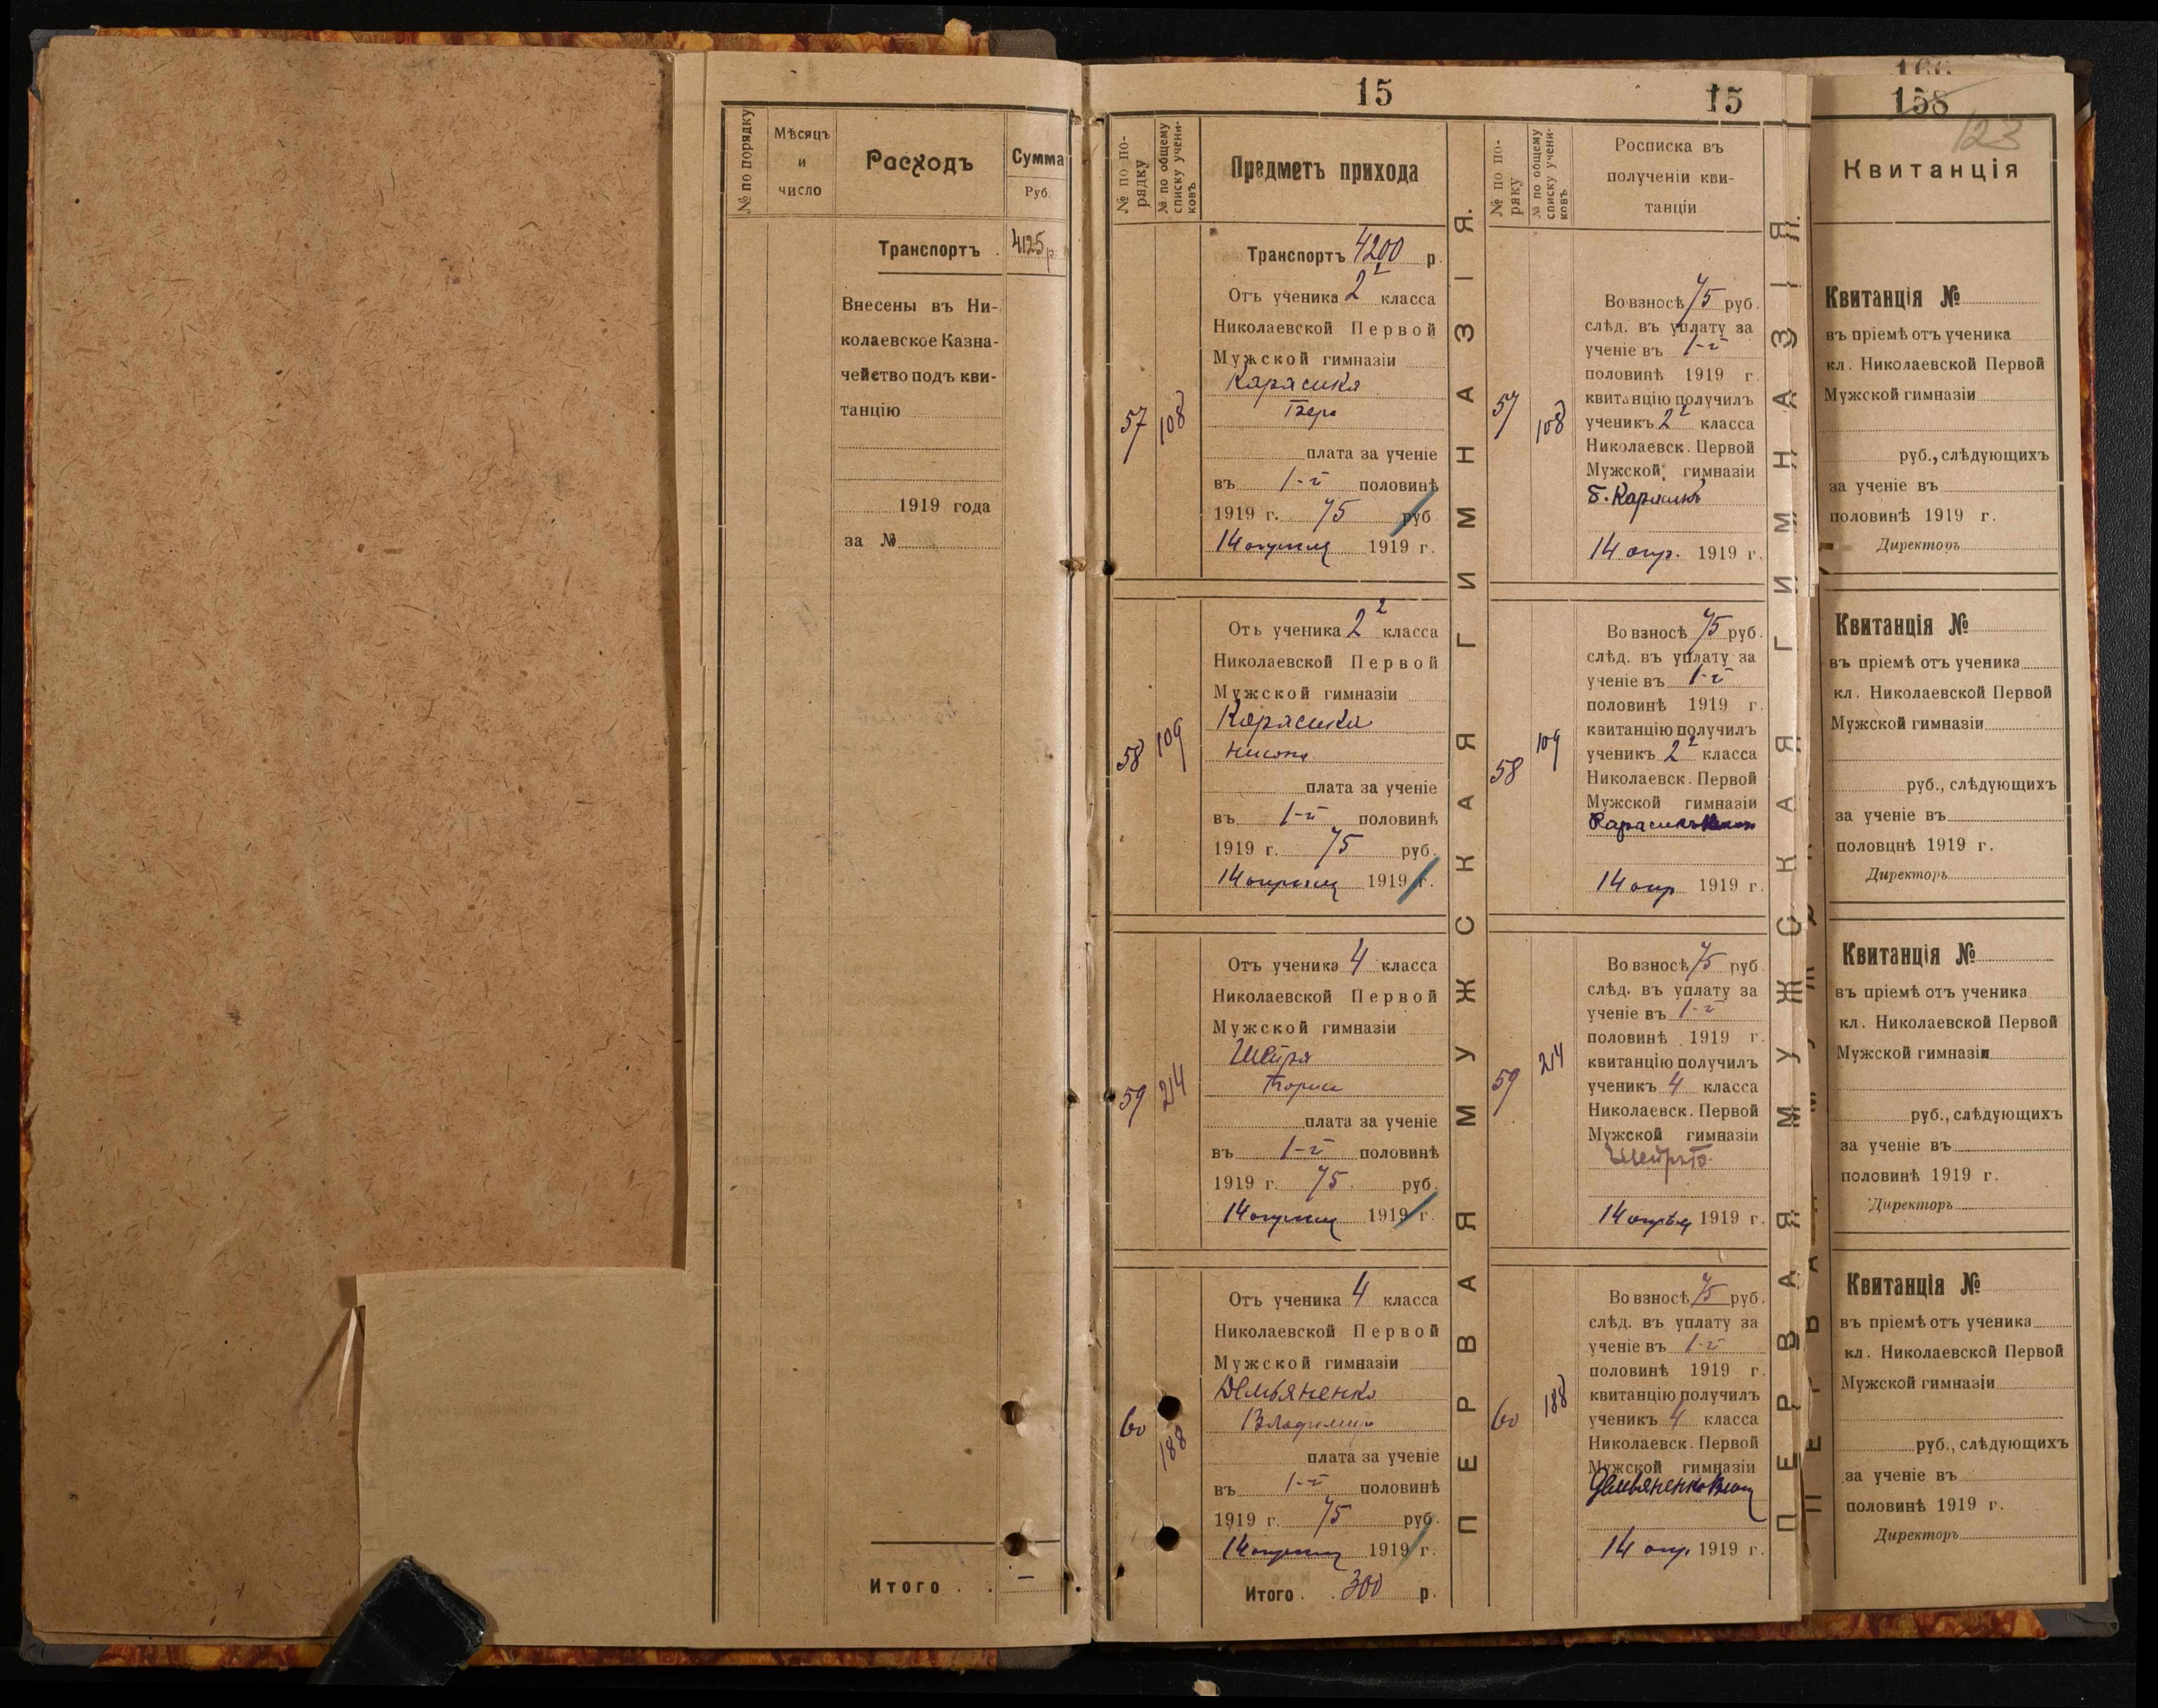 № по порядку
Мѣсяцъ
и
число
Расходъ
Сумма
Руб.
Транспортъ . 4125 р.
Внесены въ Ни-
колаевское Казна-
чейство подъ кви-
танцію
1919 года
за №
Итого . . —
15
№ по по-
рядку
№ по общему
списку учени-
ковъ
Предметъ прихода
Транспортъ 4200 р.
57
108
Отъ ученика 2² класса
Николаевской Первой
Мужской гимназіи
Карасика
Бера
плата за ученіе
въ 1-й половинѣ
1919 г. 75 руб
14 апрѣля 1919 г.
58
109
Отъ ученика 2² класса
Николаевской Первой
Мужской гимназіи
Карасика
Нисона
плата за ученіе
въ 1-й половинѣ
1919 г. 75 руб.
14 апрѣля 1919 г.
59
214
Отъ ученика 4 класса
Николаевской Первой
Мужской гимназіи
Шейра
Бориса
плата за ученіе
въ 1-й половинѣ
1919 г. 75. руб.
14 апрѣля 1919 г.
60
188
Отъ ученика 4 класса
Николаевской Первой
Мужской гимназіи
Демьяненко
Владимира
плата за ученіе
въ 1-й половинѣ
1919 г. 75 руб.
14 апрѣля 1919 г.
Итого . . 300 р.
ПЕРВАЯ МУЖСКАЯ ГИМНАЗІЯ.
15
№ по по-
ряку
№ по общему
списку учени-
ковъ
Росписка въ
полученіи кви-
танціи
57
108
Во взносѣ 75 руб.
слѣд. въ уплату за
ученіе въ 1-й
половинѣ 1919 г.
квитанцію получилъ
ученикъ 2² класса
Николаевск. Первой
Мужской гимназіи
Б. Карасикъ
14 апр. 1919 г.
58
109
Во взносѣ 75 руб.
слѣд. въ уплату за
ученіе въ 1-й
половинѣ 1919 г.
квитанцію получилъ
ученикъ 2² класса
Николаевск. Первой
Мужской гимназіи
Карасикъ
14 апр 1919 г.
59
214
Во взносѣ 75 руб
слѣд. въ уплату за
ученіе въ 1-й
половинѣ 1919 г.
квитанцію получилъ
ученикъ 4 класса
Николаевск. Первой
Мужской гимназіи
14 апрѣля 1919 г.
60
188
Во взносѣ 75 руб.
слѣд. въ уплату за
ученіе въ 1-й
половинѣ 1919 г.
квитанцію получилъ
ученикъ 4 класса
Николаевск. Первой
Мужской гимназіи
Демьяненко
14 апр. 1919 г.
ПЕРВАЯ МУЖСКАЯ ГИМНАЗІЯ.
166
158
123
Квитанція
Квитанція №
въ пріемѣ отъ ученика
кл. Николаевской Первой
Мужской гимназіи
руб., слѣдующихъ
за ученіе въ
половинѣ 1919 г.
Директоръ
Квитанція №
въ пріемѣ отъ ученика
кл. Николаевской Первой
Мужской гимназіи
руб., слѣдующихъ
за ученіе въ
половцнѣ 1919 г.
Директоръ
Квитанція №
въ пріемѣ отъ ученика
кл. Николаевской Первой
Мужской гимназіи
руб., слѣдующихъ
за ученіе въ
половинѣ 1919 г.
Директоръ
Квитанція №
въ пріемѣ отъ ученика
кл. Николаевской Первой
Мужской гимназіи
руб., слѣдующихъ
за ученіе въ
половинѣ 1919 г.
Директоръ